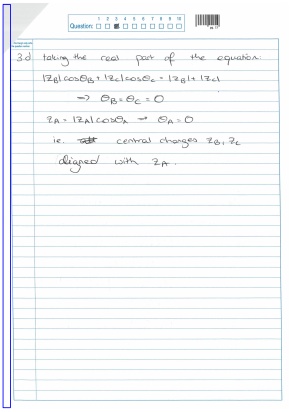 Question: 1 2 3 4 5 6 7 8 9 10
3.d taking the real part of the equation:
|Z_B|cosθ_B + |Z_C|cosθ_C = |Z_B| + |Z_C|
⇒ θ_B = θ_C = 0
Z_A = |Z_A|cosθ_A ⇒ θ_A = 0
i.e. central charges Z_B, Z_C
aligned with Z_A.